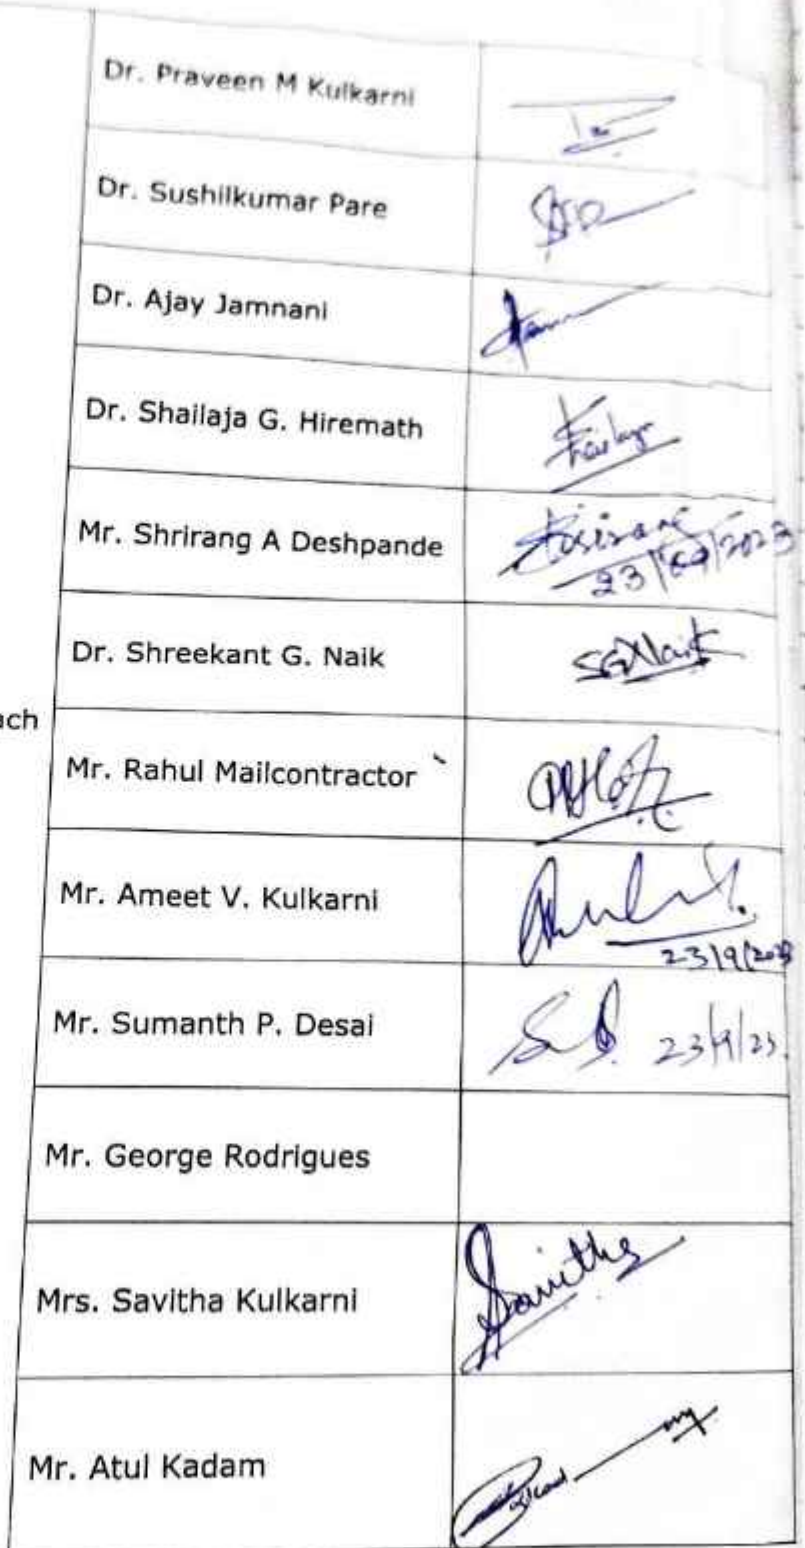 Dr. Praveen M Kulkarni
Dr. Sushilkumar Pare
Dr. Ajay Jamnani
Dr. Shailaja G. Hiremath
Mr. Shrirang A Deshpande
23/09/2023
Dr. Shreekant G. Naik
SGNaik
ach
Mr. Rahul Mailcontractor
Mr. Ameet V. Kulkarni
23/9/2023
Mr. Sumanth P. Desai
23/9/23.
Mr. George Rodrigues
Mrs. Savitha Kulkarni
Savitha
Mr. Atul Kadam